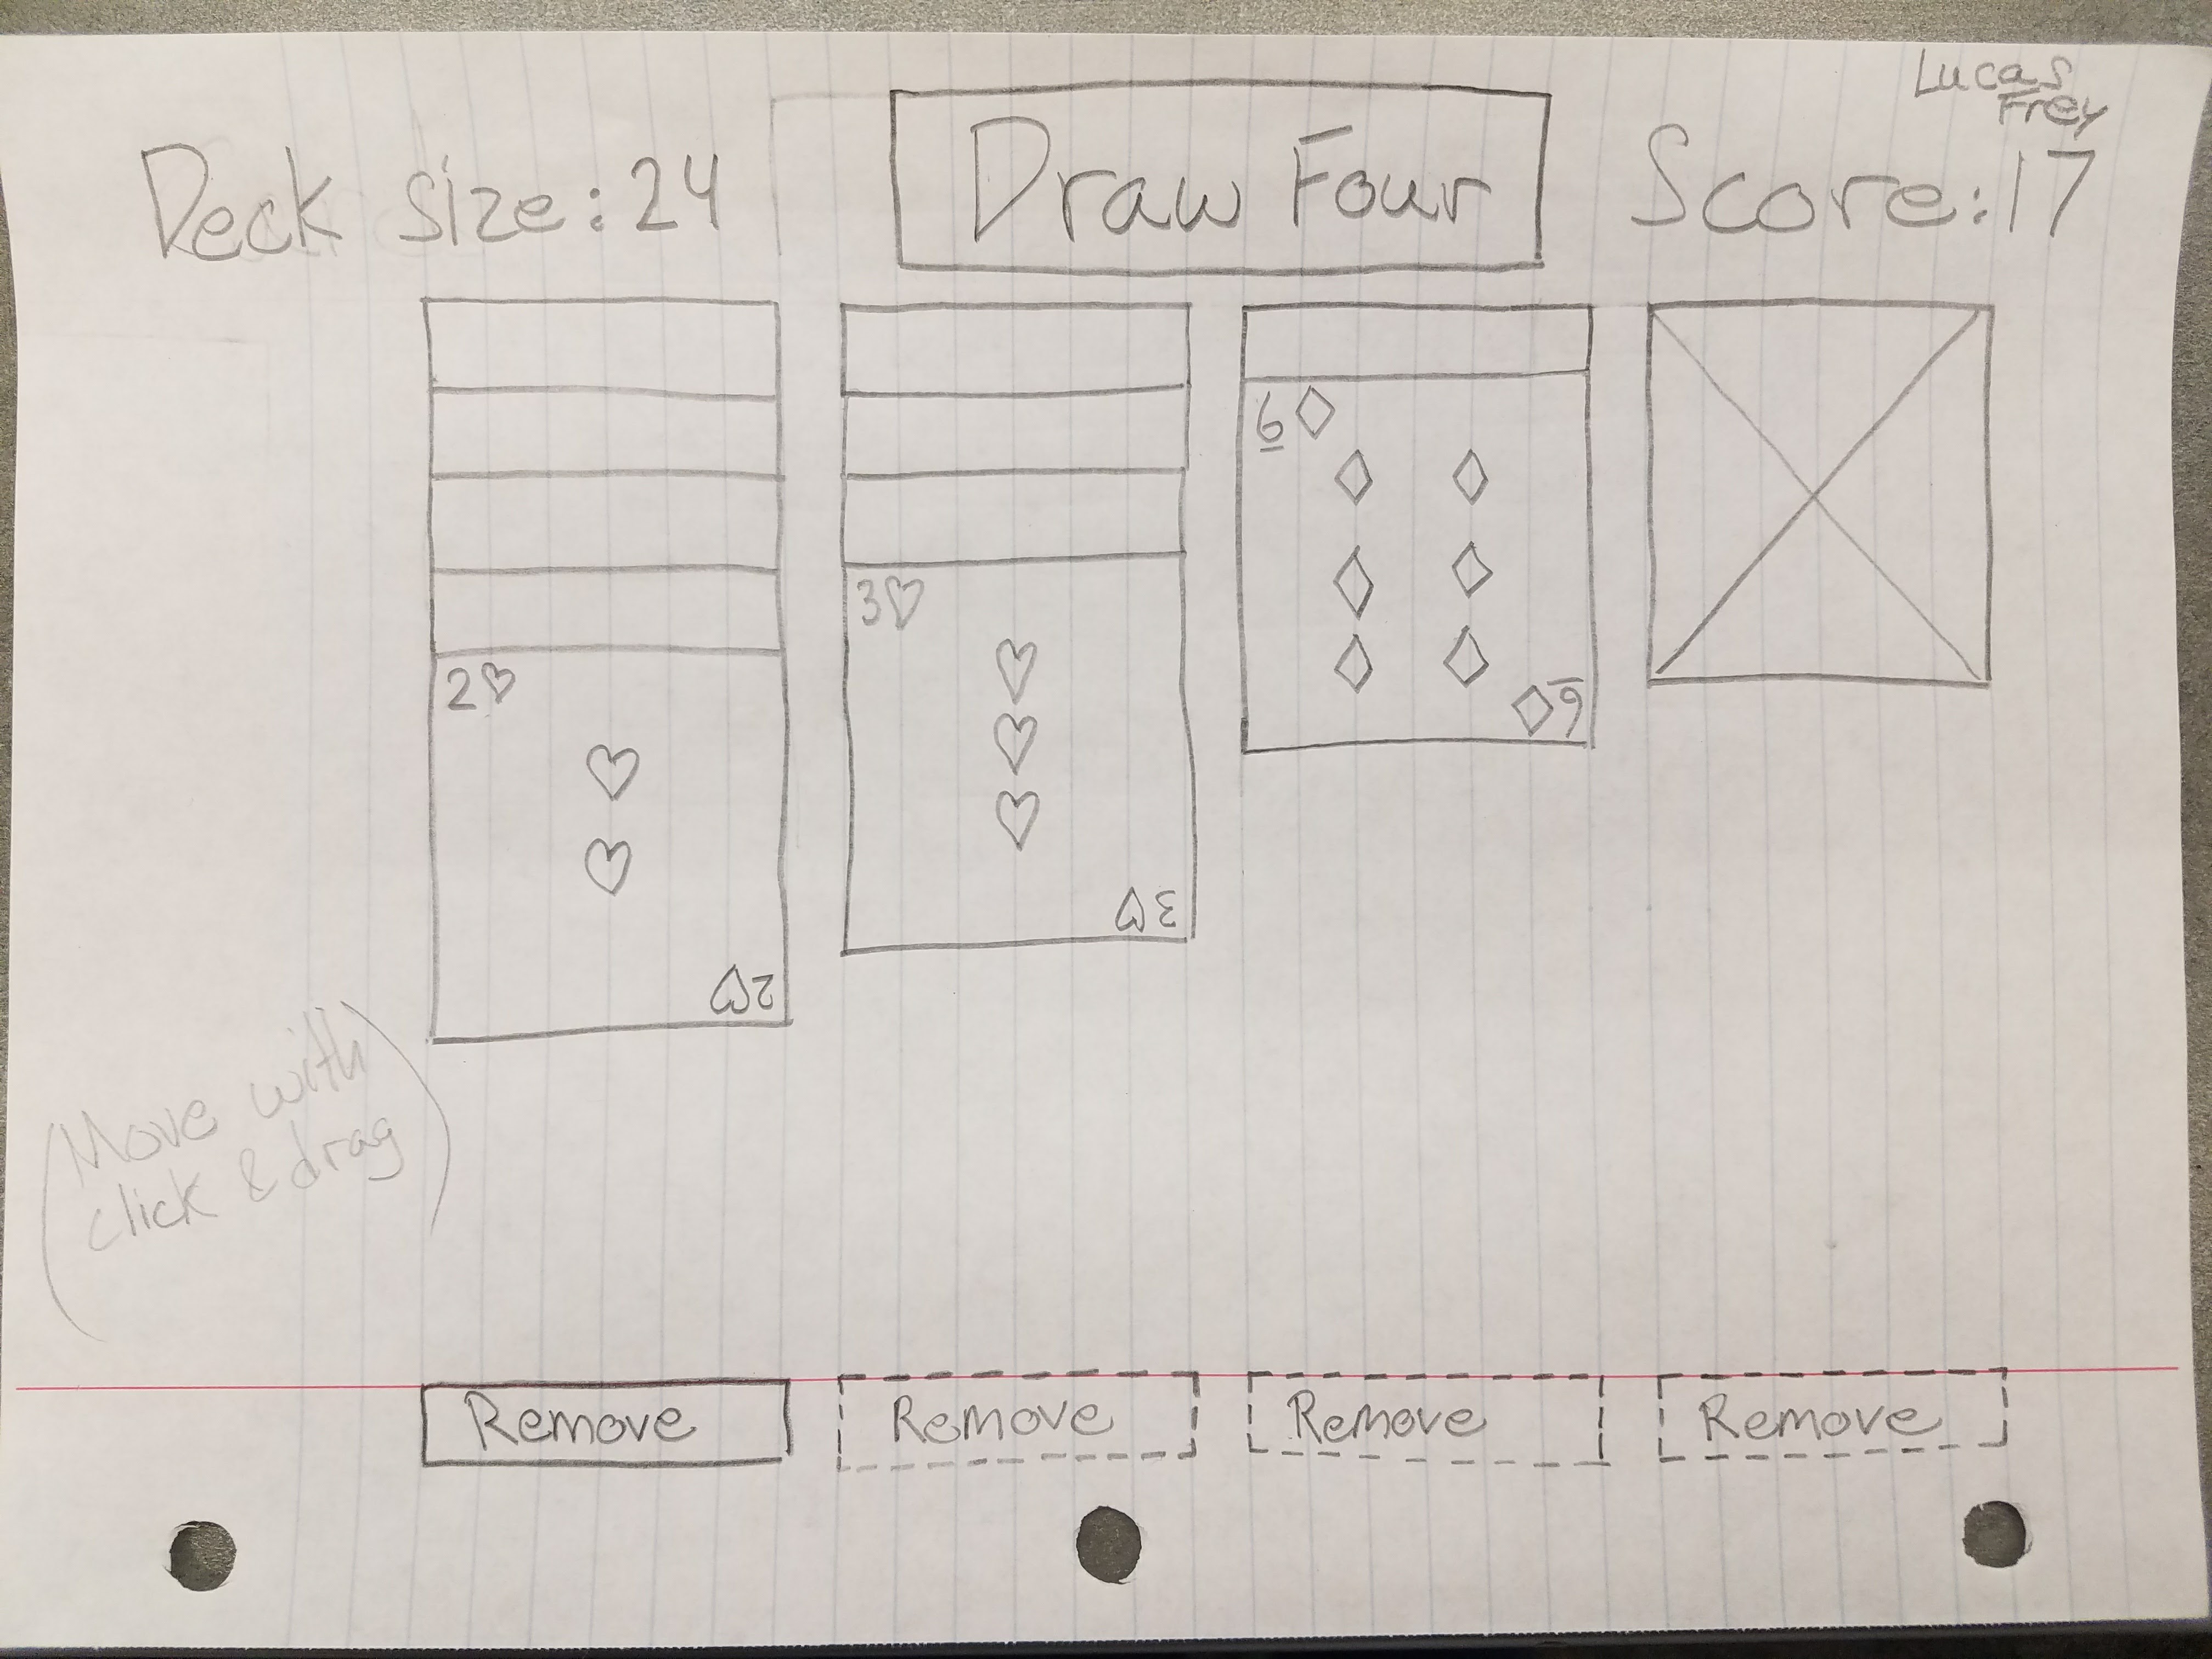 Lucas
Frey
Deck size: 24
Draw Four
Score: 17
2♡
2♡
3♡
3♡
6♢
6♢
(Move with
click & drag)
Remove
Remove
Remove
Remove